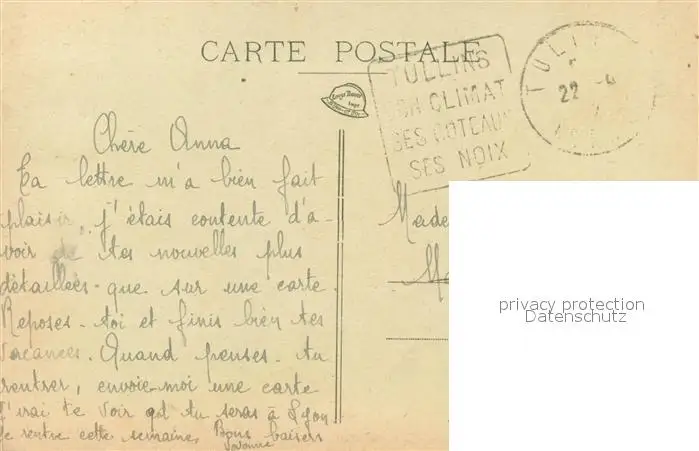 CARTE POSTALE
TULLINS
SON CLIMAT
SES COTEAUX
SES NOIX
TULI
22
Chère Anna
Ta lettre m'a bien fait
plaisir, j'étais contente d'a-
voir de tes nouvelles plus
détaillées que sur une carte.
Reposes-toi et finis bien tes
vacances. Quand penses-tu
rentrer, envoie-moi une carte
j'irai te voir qd tu seras à Lyon
Je rentre cette semaine. Bons baisers
Made
privacy protection
Datenschutz